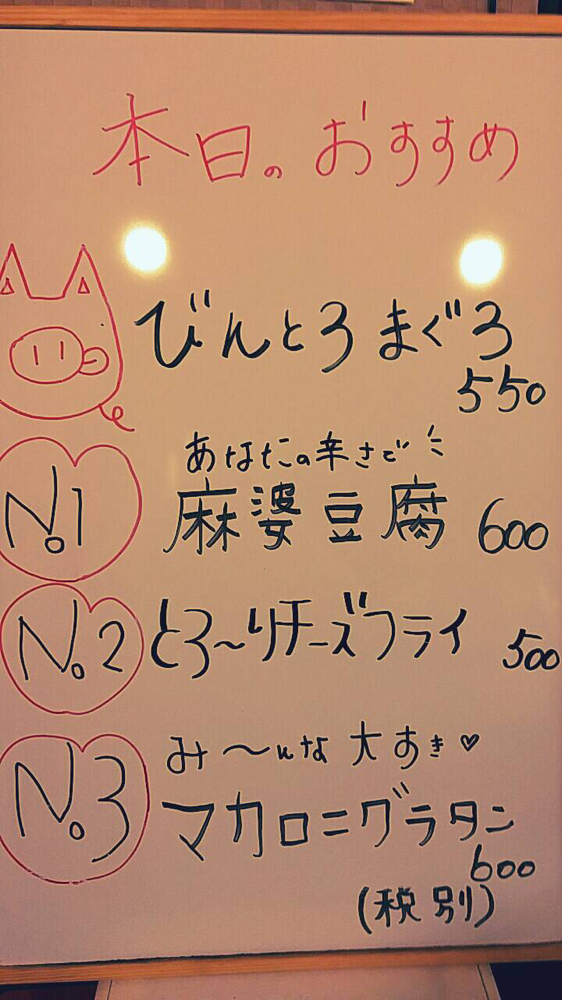 本日のおすすめ
びんとろまぐろ
550
あなたの辛さで
No.1 麻婆豆腐 600
No.2 とろ〜りチーズフライ 500
み〜んな大すき♡
No.3 マカロニグラタン
600
(税別)